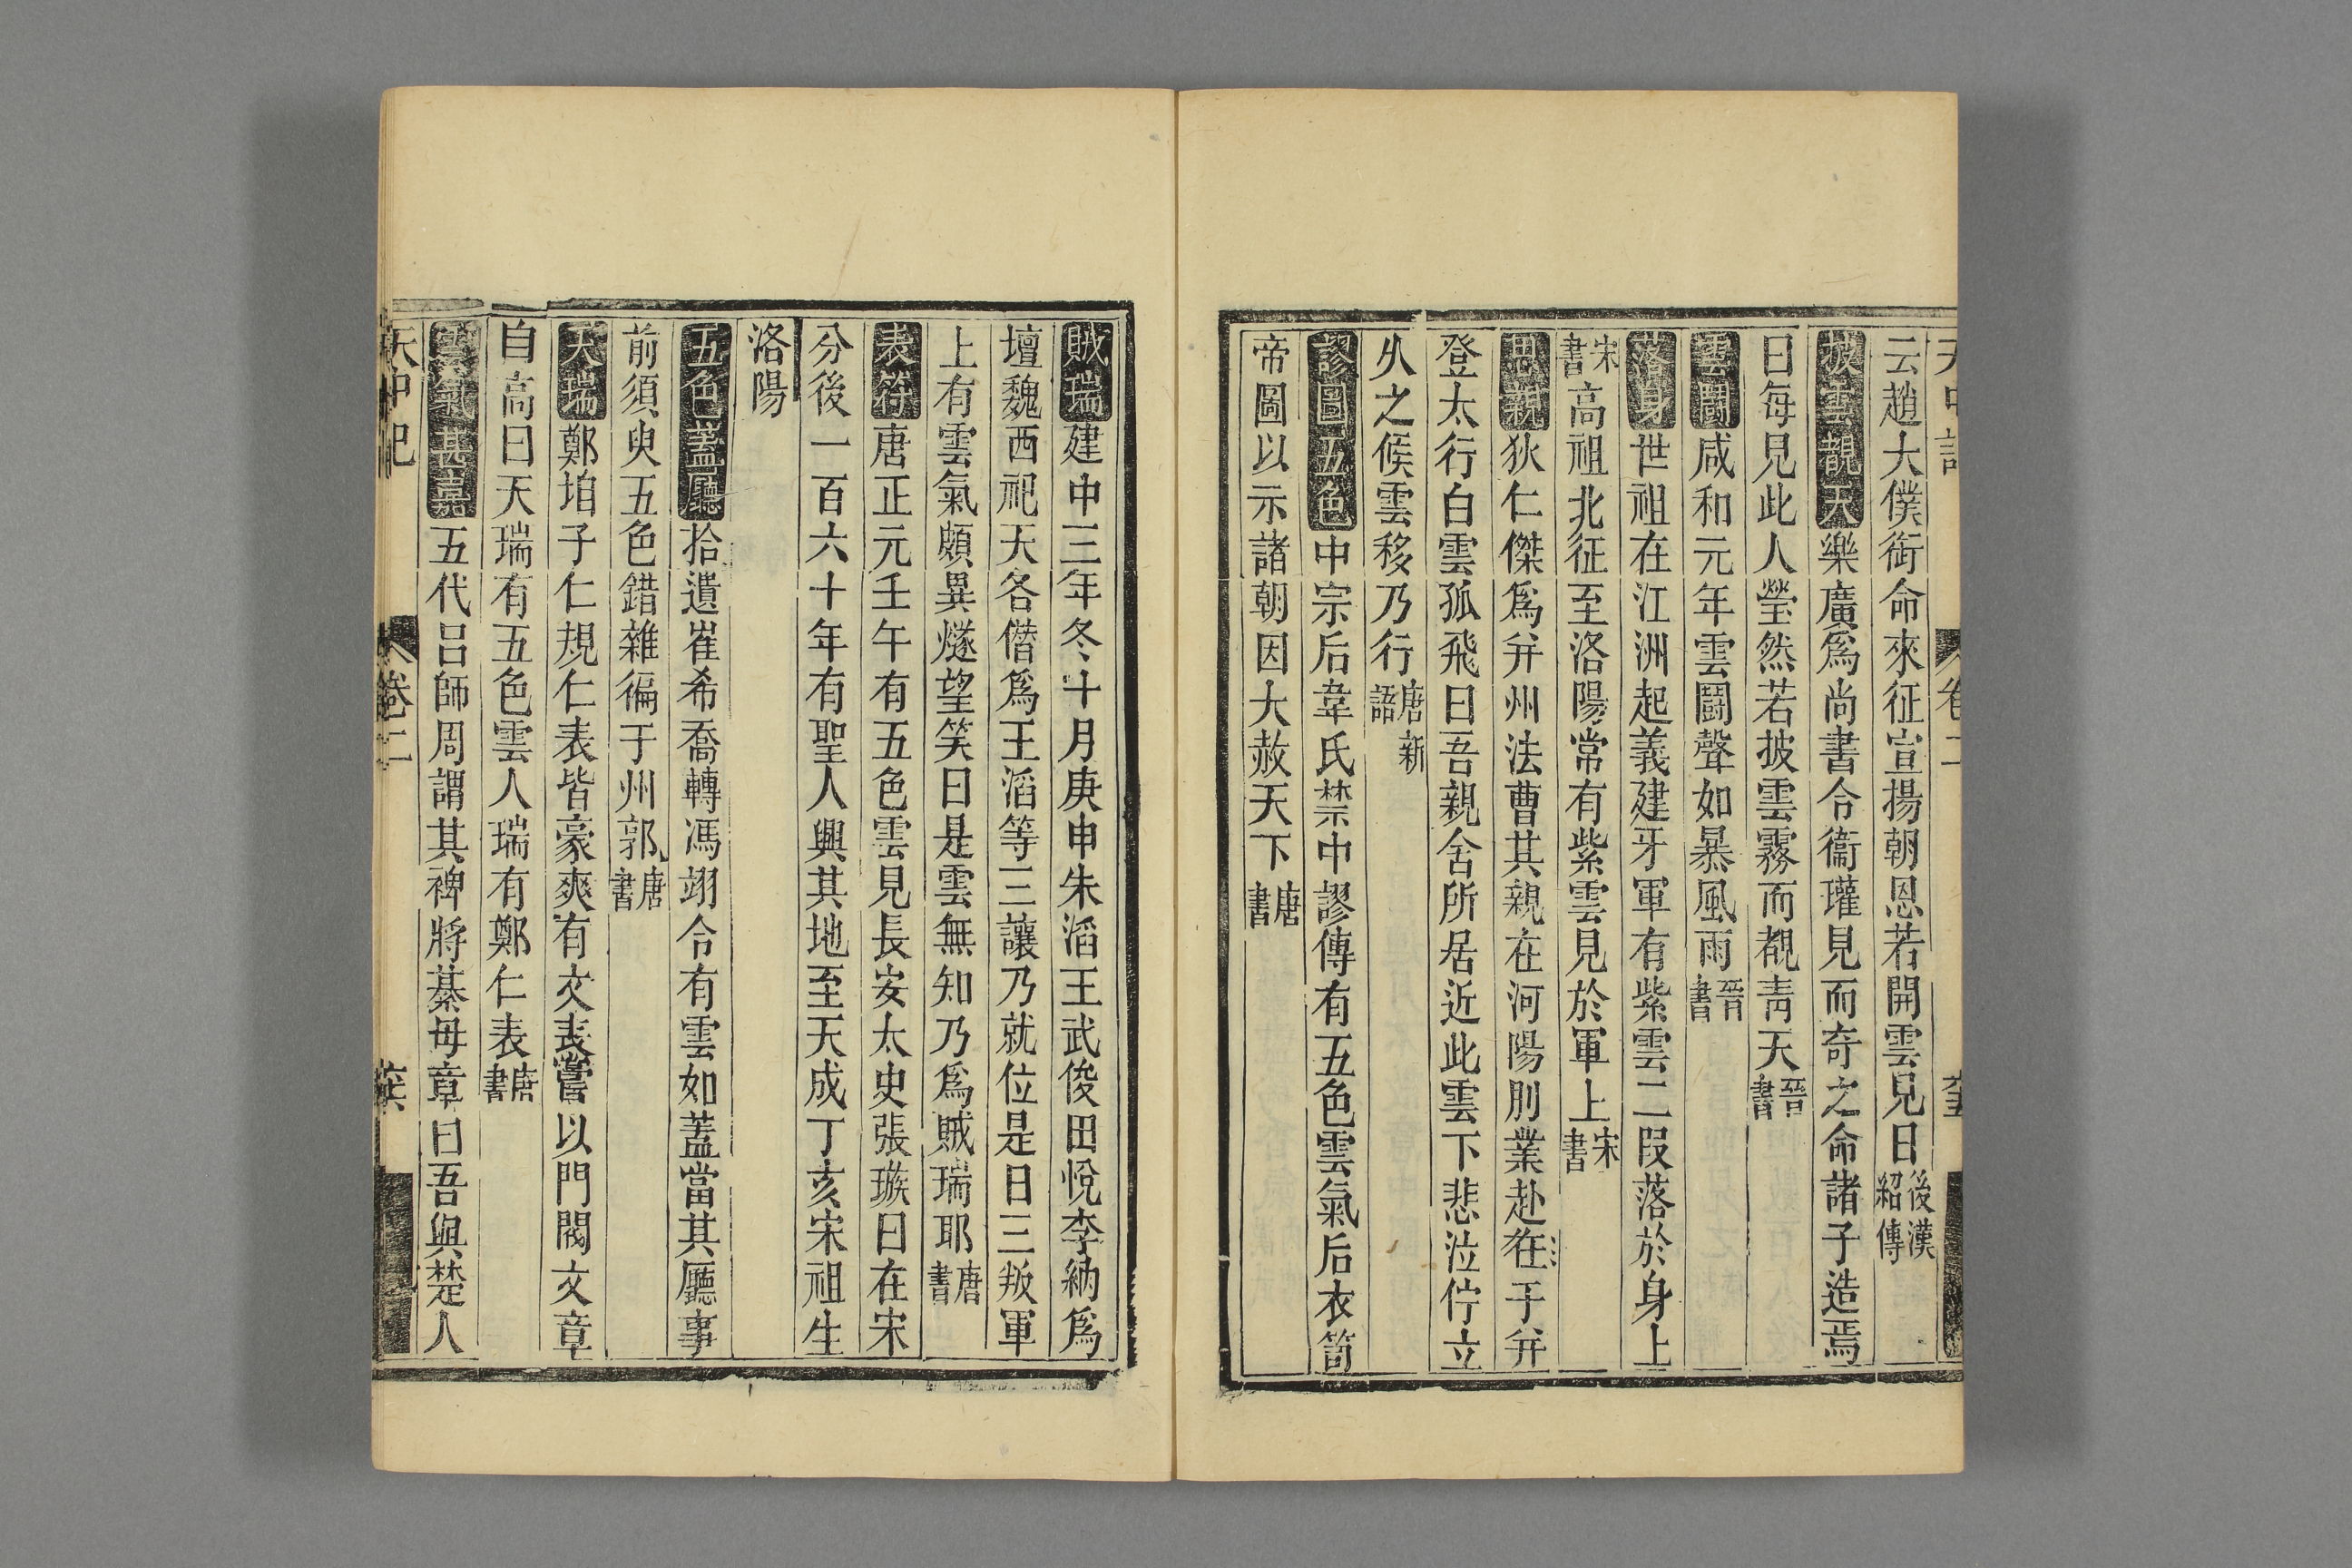 云趙大僕銜命來征宣揚朝恩若開雲見日後漢紹傳
披雲覩天樂廣爲尚書令衞瓘見而奇之命諸子造焉
曰每見此人瑩然若披雲霧而覩靑天晉書
雲鬪咸和元年雲鬪聲如暴風雨晉書
落身世祖在江洲起義建牙軍有紫雲二段落於身上
宋書高祖北征至洛陽常有紫雲見於軍上宋書
思親狄仁傑爲幷州法曹其親在河陽別業赴在于幷
登太行白雲孤飛曰吾親舍所居近此雲下悲泣佇立
久之候雲移乃行唐新語
謬圖五色中宗后韋氏禁中謬傳有五色雲氣后衣笥
帝圖以示諸朝因大赦天下唐書
賊瑞建中三年冬十月庚申朱滔王武俊田悅李納爲
壇魏西祀天各僣爲王滔等三讓乃就位是日三叛軍
上有雲氣頗異燧望笑曰是雲無知乃爲賊瑞耶唐書
表符唐正元壬午有五色雲見長安太史張璇曰在宋
分後一百六十年有聖人興其地至天成丁亥宋祖生
洛陽
五色蓋廳拾遺崔希喬轉馮翊令有雲如蓋當其廳事
前須臾五色錯雜徧于州郭唐書
天瑞鄭垍子仁規仁表皆豪爽有文表嘗以門閥文章
自高曰天瑞有五色雲人瑞有鄭仁表唐書
雲氣甚嘉五代呂師周謂其裨將綦毋章曰吾與楚人
天中記 卷二